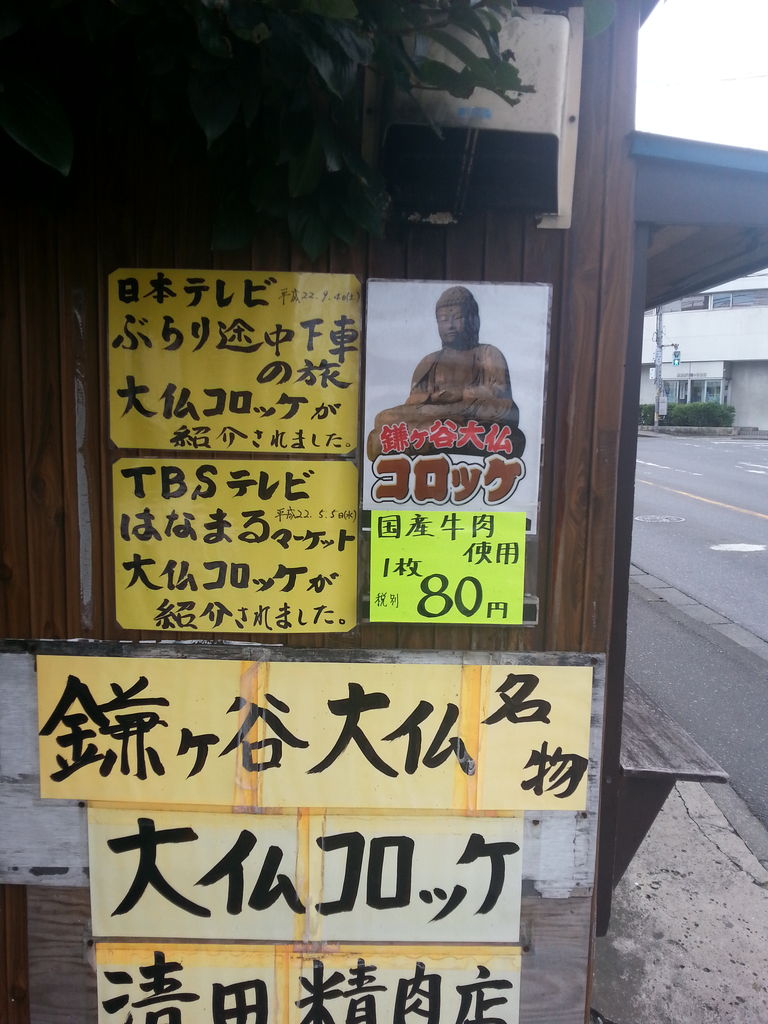 日本テレビ 平成22.9.4(土)
ぶらり途中下車
の旅
大仏コロッケが
紹介されました。
TBSテレビ
平成22.5.5(水)
はなまるマーケット
大仏コロッケが
紹介されました。
鎌ヶ谷大仏
コロッケ
国産牛肉
使用
1枚
税別 80円
鎌ヶ谷大仏 名物
大仏コロッケ
清田精肉店